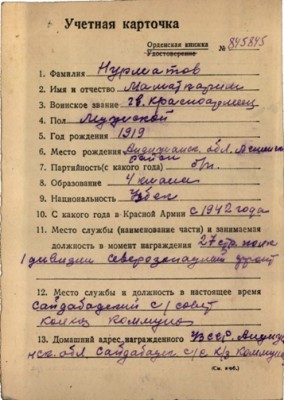 Учетная карточка
Орденская книжка
Удостоверение № 845845
1. Фамилия Нурматов
2. Имя и отчество
3. Воинское звание гв. красноармеец
4. Пол Мужской
5. Год рождения 1919
6. Место рождения Андижанск. обл.
район
7. Партийность (с какого года) б/п.
8. Образование 4 класса
9. Национальность Узбек
10. С какого года в Красной Армии с 1942 года
11. Место службы (наименование части) и занимаемая
должность в момент награждения 27 стр. полк
1 дивизии северозападный фронт
12. Место службы и должность в настоящее время
Сайдабадский с/совет
колхоз Коммуна
13. Домашний адрес награжденного УзССР, Андижа
нск. обл Сайдабадск с/с к/з Коммуна
(См. н/об.)